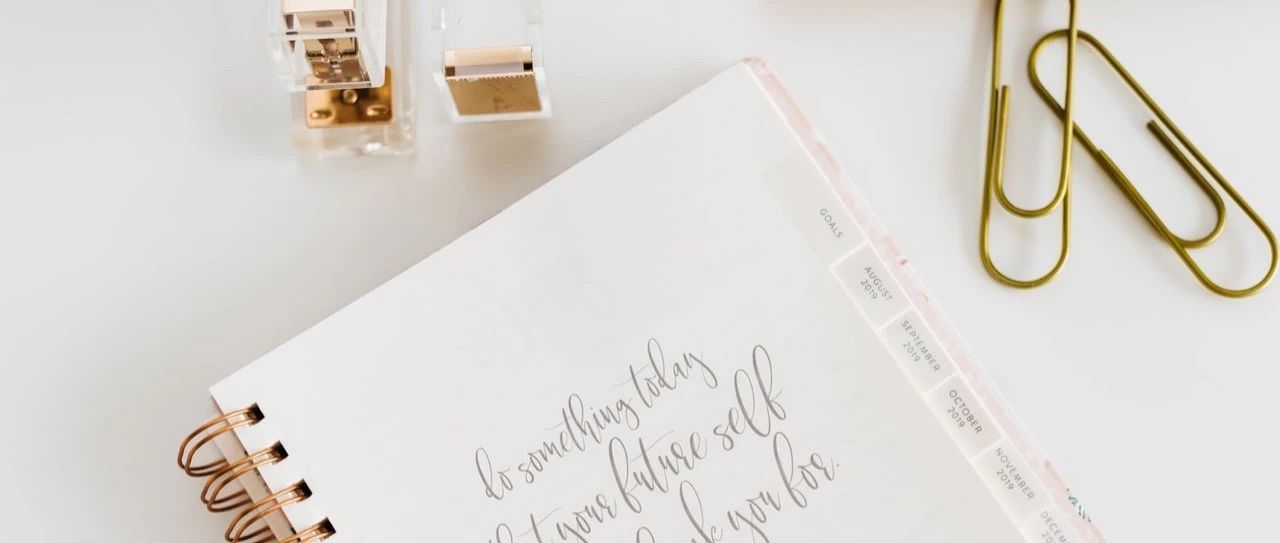 do something today
your future self
you for.
GOALS
AUGUST
2019
SEPTEMBER
2019
OCTOBER
2019
NOVEMBER
2019